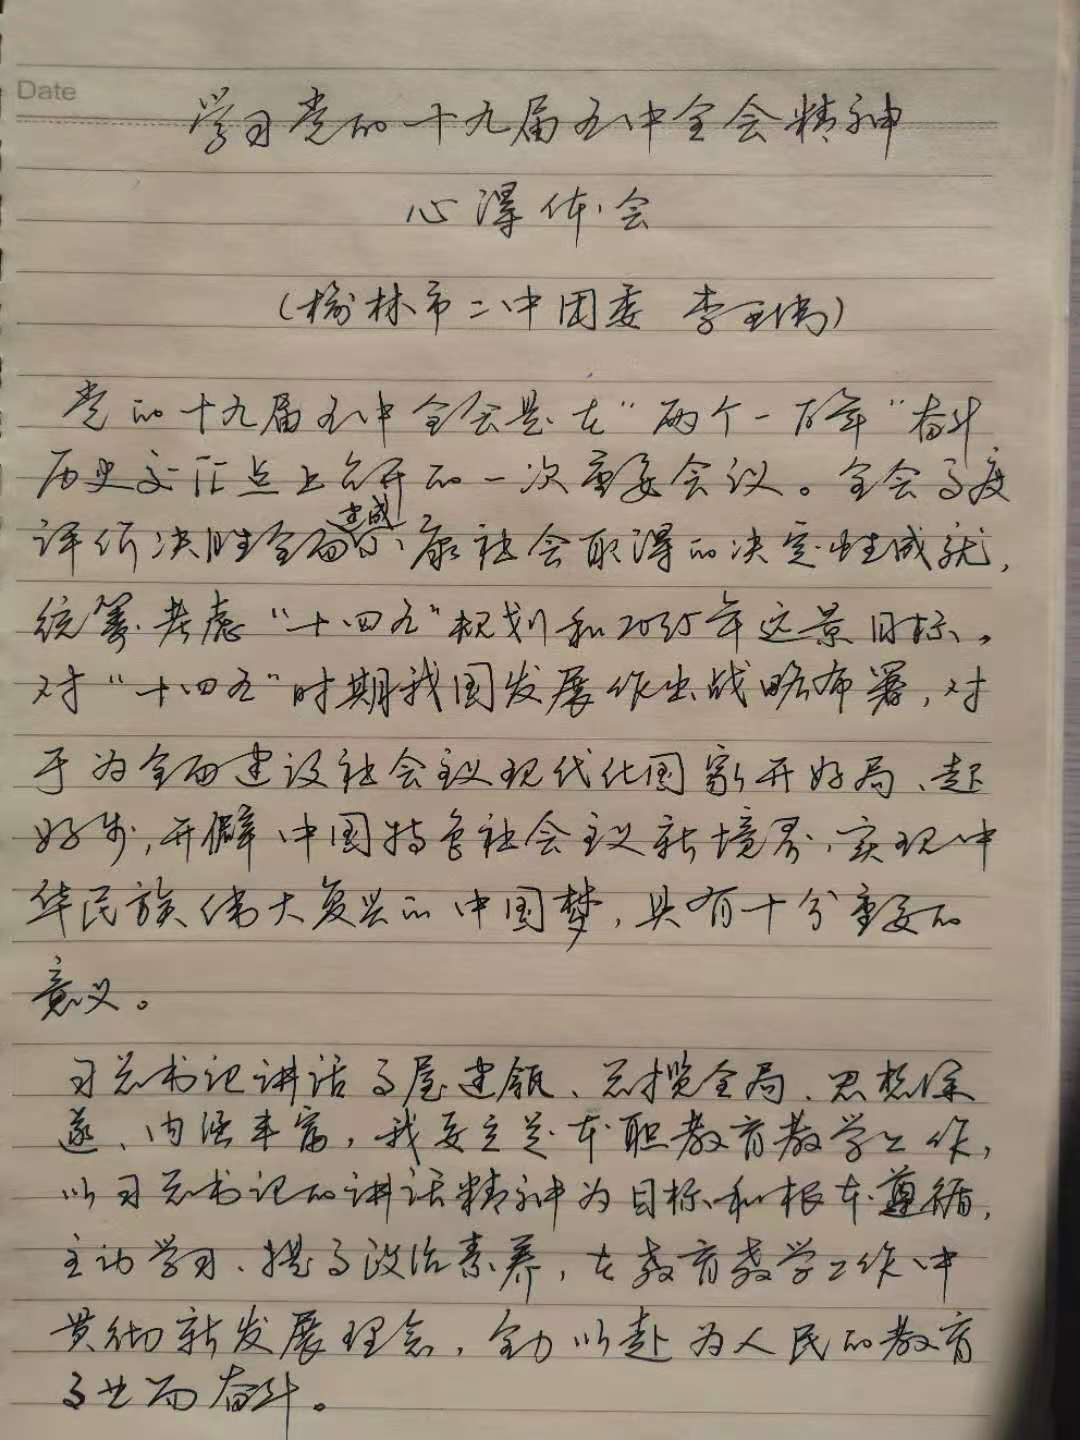 Date
学习党的十九届五中全会精神
心得体会
(榆林市二中团委 李亚倩)
党的十九届五中全会是在“两个一百年”奋斗
历史交汇点上召开的一次重要会议。全会高度
评价决胜全面建成小康社会取得的决定性成就,
统筹考虑“十四五”规划和2035年远景目标,
对“十四五”时期我国发展作出战略布署,对
于为全面建设社会主义现代化国家开好局、起
好步,开辟中国特色社会主义新境界,实现中
华民族伟大复兴的中国梦,具有十分重要的
意义。
习总书记讲话高屋建瓴、总揽全局、思想深
邃、内涵丰富,我要立足本职教育教学工作,
以习总书记的讲话精神为目标和根本遵循,
主动学习、提高政治素养,在教育教学工作中
贯彻新发展理念,全力以赴为人民的教育
事业而奋斗。